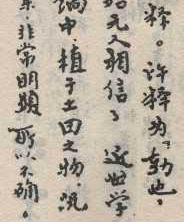 释。许释为"勃也，
始无人相信了 近世学
谒中，植于土田之物，况
系，非常明显 所以不确。